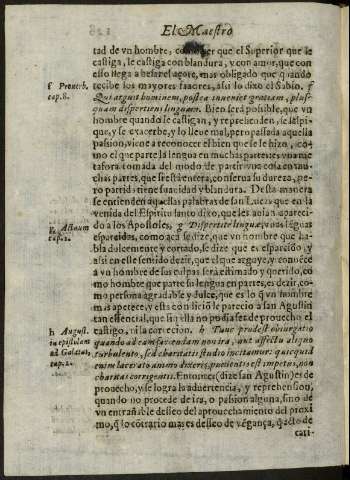 El Maestro
tad de vn hombre, conocer que el Superior que le
castiga, le castiga con blandura, y con amor, que con
esso llega a besar el açote, mas obligado que quando
f Prouerb.
recibe los mayores fauores, assi lo dixo el Sabio. f
cap.8.
Qui arguit hominem, postea inueniet gratiam, plusquam
dispertiens linguam. Bien será possible, que vn
hombre quando le castigan, y reprehenden,
que, y se exacerbe, y lo lleue mal, pero passada aquella
passion, viene a reconocer el bien que se le hizo, co-
mo el que parte la lengua en muchas partes
tafora tomada del modo de partir vna cosa en mu-
chas partes, que si està entera, conserua su dureza, pe-
ro partida tiene suauidad y blandura. Desta manera
se entienden aquellas palabras de san Lucas que en la
venida del Espiritu santo dixo, que les auian apareci-
g Actuum
do a los Apostoles, g Dispertitæ linguæ, vnas lenguas
cap.2.
esparzidas, como acà se dize, que vn hombre que ha-
bla dulcemente y cortado, se dize que es esparcido, y
assi en este sentido dezir, que el que arguye, y conuēce
a vn hombre de sus culpas será estimado y querido, co
mo hombre que parte su lengua en partes, es dezir, co-
mo persona agradable y dulce, que es lo q̃ vn hombre
mas apetece, y esta condicion le parecio a san Agustin
tan essential, que sin ella no podia ser de prouecho el
h August.
castigo, ni la correcion. h Tunc prodest obiurgatio
in epistolam
quando ad eam facendam non ira, aut affectu aliquo
ad Galatas,
turbulento, sed charitatis studio incitamur: quicquid
cap.
enim lacerato animo dixeris, punientis est impetus, non
charitas corrigentis. Entonces (dize san Agustin) es de
prouecho, y se logra la aduertencia, y reprehension,
quando no procede de ira, o passion alguna, sino de
vn entrañable desseo del aprouechamiento del proxi
mo, q̃ lo cōtrario mas es desseo de vēgança, q̃ acto de
cari-